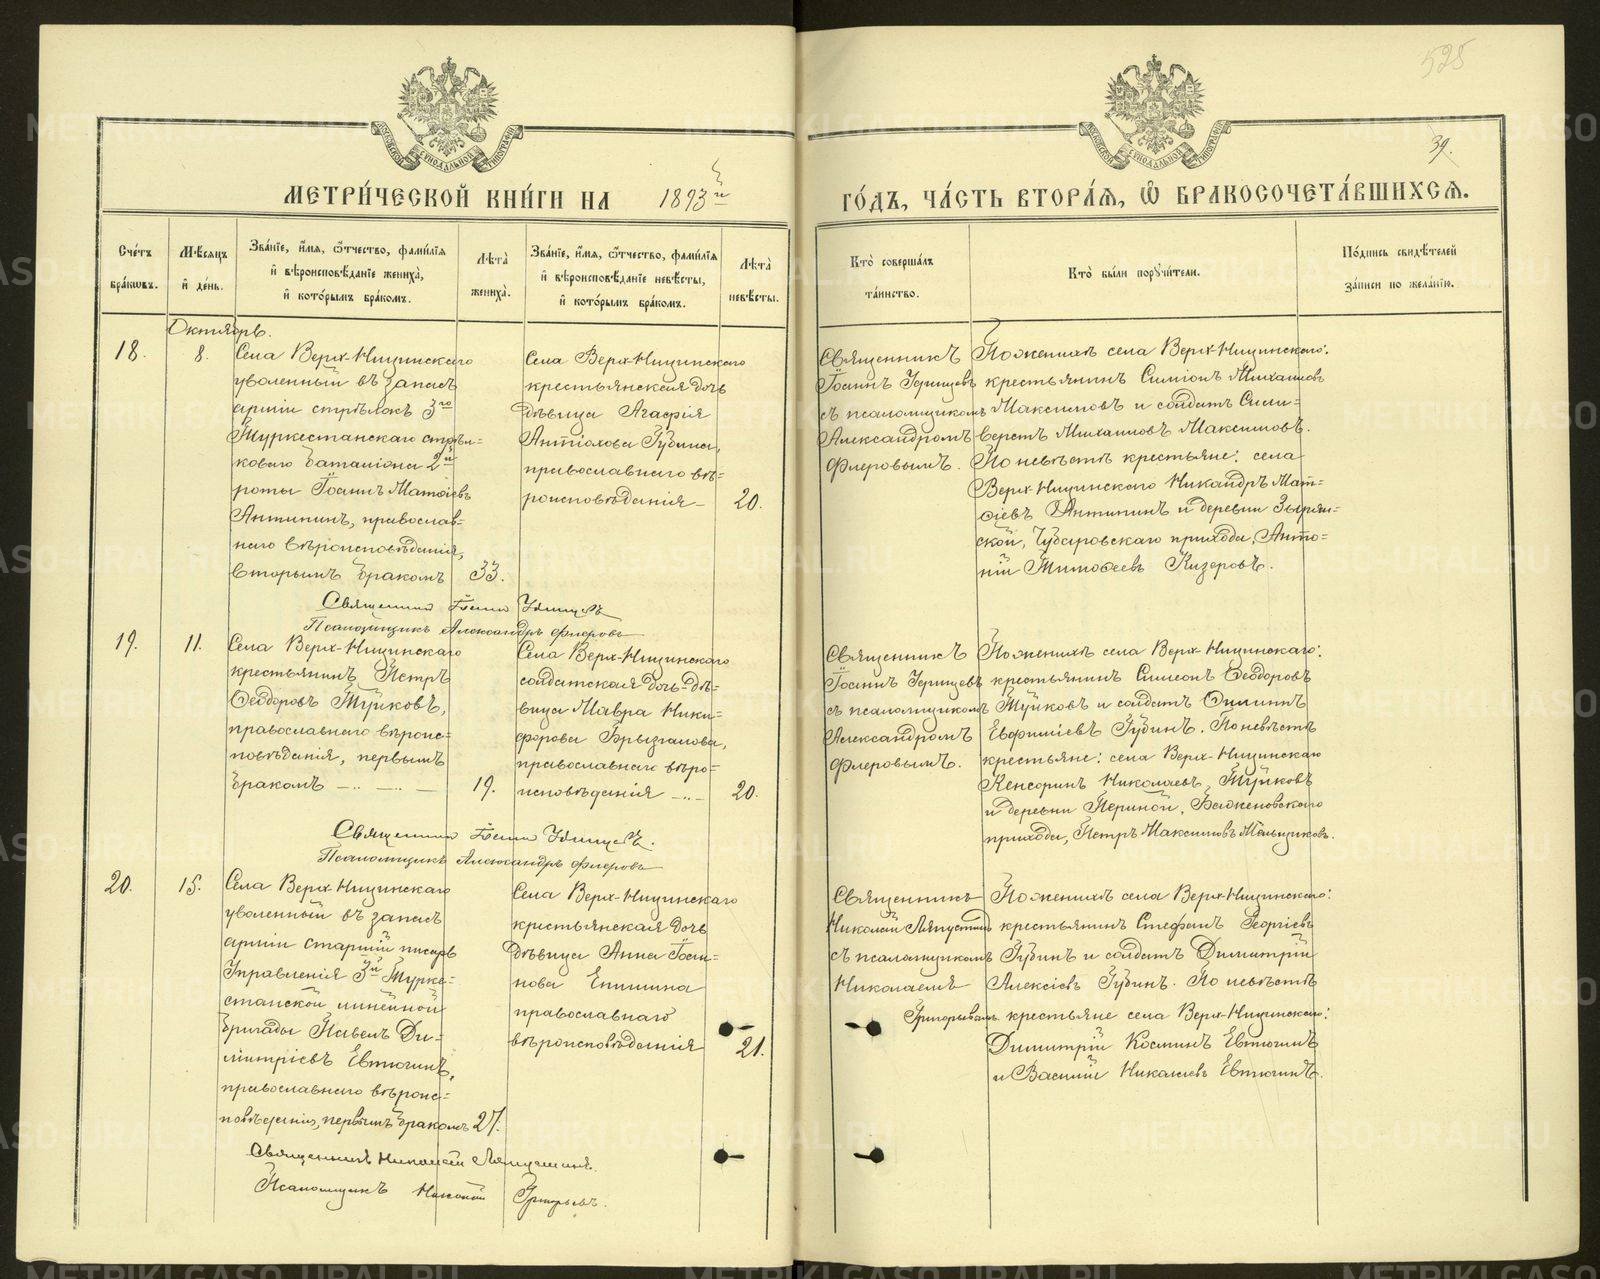 525
39.
МОСКОВСКОЙ СѴНОДАЛЬНОЙ ТИПОГРАФІИ
МОСКОВСКОЙ СѴНОДАЛЬНОЙ ТИПОГРАФІИ
МЕТРИ́ЧЕСКОЙ КНИ́ГИ НА 1893й ГО́ДЪ, ЧА́СТЬ ВТОРА́Я, Ѽ БРАКОСОЧЕТА́ВШИХСЯ.
Сче́тъ бра́ковъ.
Мѣ́сяцъ и҆ де́нь.
Зва́нїе, и҆́мя, ѻ҆́тчество, фами́лїя и҆ вѣроисповѣ́данїе жениха̀, и҆ кото́рымъ бра́комъ.
Лѣта̀ жениха̀.
Зва́нїе, и҆́мя, ѻ҆́тчество, фами́лїя и҆ вѣроисповѣ́данїе невѣ́сты, и҆ кото́рымъ бра́комъ.
Лѣта̀ невѣ́сты.
Кто̀ соверша́лъ та́инство.
Кто̀ бы́ли порꙋчи́тели.
По́дпись свидѣ́телей за́писи по жела́нїю.
Октябрь.
18.
8.
Села Верх-Ницинскаго
уволенный въ запасъ
арміи стрѣлокъ 3го
Туркестанскаго стрѣл-
коваго баталіона 2й
роты Іоаннъ Матѳіевъ
Антипинъ, православ-
наго вѣроисповѣданія,
вторымъ бракомъ
33.
Села Верх-Ницинскаго
крестьянская дочь
дѣвица Агафія
Антіохова Губина,
православнаго вѣ-
роисповѣданія
20.
Священникъ
Іоаннъ Удинцевъ
съ псаломщикомъ
Александромъ
Флеровымъ.
По женихѣ села Верх-Ницинскаго:
крестьянинъ Симіонъ Михаиловъ
Максимовъ и солдатъ Сили-
верстъ Михаиловъ Максимовъ.
По невѣстѣ крестьяне: села
Верх-Ницинскаго Никандръ Мат-
ѳіевъ Антипинъ и деревни Зырян-
ской, Чубаровскаго прихода, Анто-
ній Тимоѳеевъ Кизеровъ.
Священникъ Іоаннъ Удинцевъ
Псаломщикъ Александръ Флеровъ
19.
11.
Села Верх-Ницинскаго
крестьянинъ Петръ
Ѳеодоровъ Туйковъ,
православнаго вѣроис-
повѣданія, первымъ
бракомъ
19.
Села Верх-Ницинскаго
солдатская дочь дѣ-
вица Мавра Ники-
форова Брызгалова,
православнаго вѣро-
исповѣданія
20.
Священникъ
Іоаннъ Удинцевъ
съ псаломщикомъ
Александромъ
Флеровымъ.
По женихѣ села Верх-Ницинскаго:
крестьянинъ Симеонъ Ѳеодоровъ
Туйковъ и солдатъ Филиппъ
Евфиміевъ Губинъ. По невѣстѣ
крестьяне: села Верх-Ницинскаго
Кенсоринъ Николаевъ Туйковъ
и деревни Периной, Баженовскаго
прихода, Петръ Максимовъ Мельниковъ.
Священникъ Іоаннъ Удинцевъ.
Псаломщикъ Александръ Флеровъ
20.
15.
Села Верх-Ницинскаго
уволенный въ запасъ
арміи старшій писарь
Управленія 3й Турке-
станской линейной
бригады Павелъ Ди-
митріевъ Евтюгинъ,
православнаго вѣроис-
повѣданія, первымъ бракомъ
27.
Села Верх-Ницинскаго
крестьянская дочь
дѣвица Анна Іоан-
нова Епишина
православнаго
вѣроисповѣданія
21.
Священникъ
Николай Ляпустинъ
съ псаломщикомъ
Николаемъ
Григорьевымъ.
По женихѣ села Верх-Ницинскаго:
крестьянинъ Стефанъ Георгіевъ
Губинъ и солдатъ Димитрій
Алексіевъ Губинъ. По невѣстѣ
крестьяне села Верх-Ницинскаго:
Димитрій Косминъ Евтюгинъ
и Василій Николаевъ Евтюгинъ.
Священникъ Николай Ляпустинъ.
Псаломщикъ Николай Григорьевъ.
METRIKI.GASO-URAL.RU